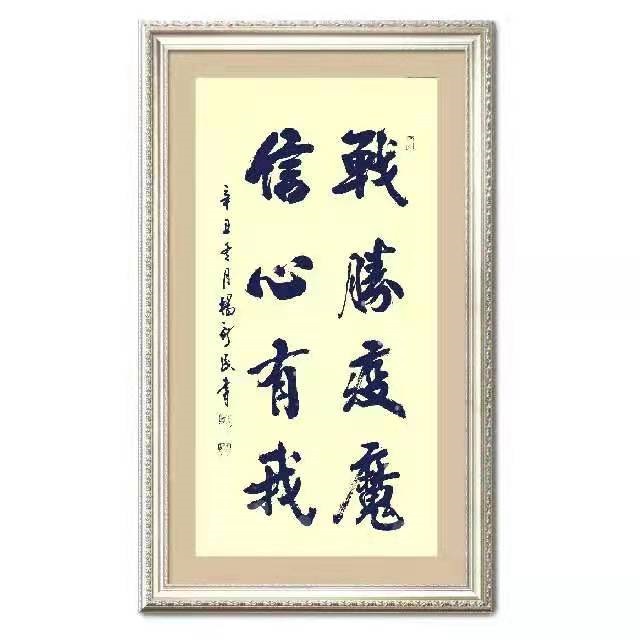 戰勝疫魔
信心有我
辛丑冬月楊新民書